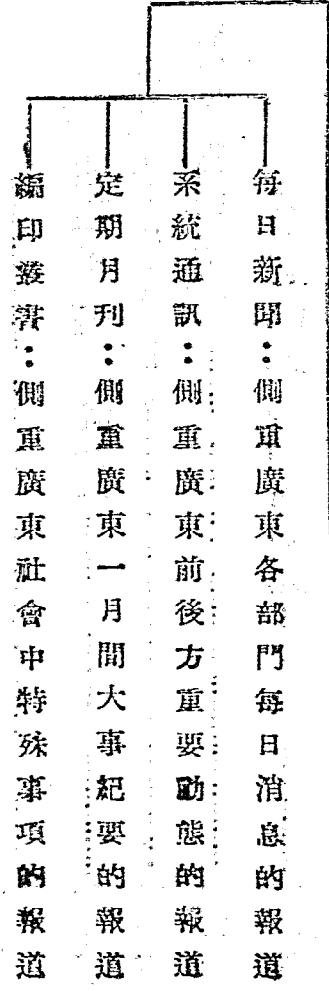 每日新聞：側重廣東各部門每日消息的報道
系統通訊：側重廣東前後方重要動態的報道
定期月刊：側重廣東一月間大事紀要的報道
編印叢書：側重廣東社會中特殊事項的報道